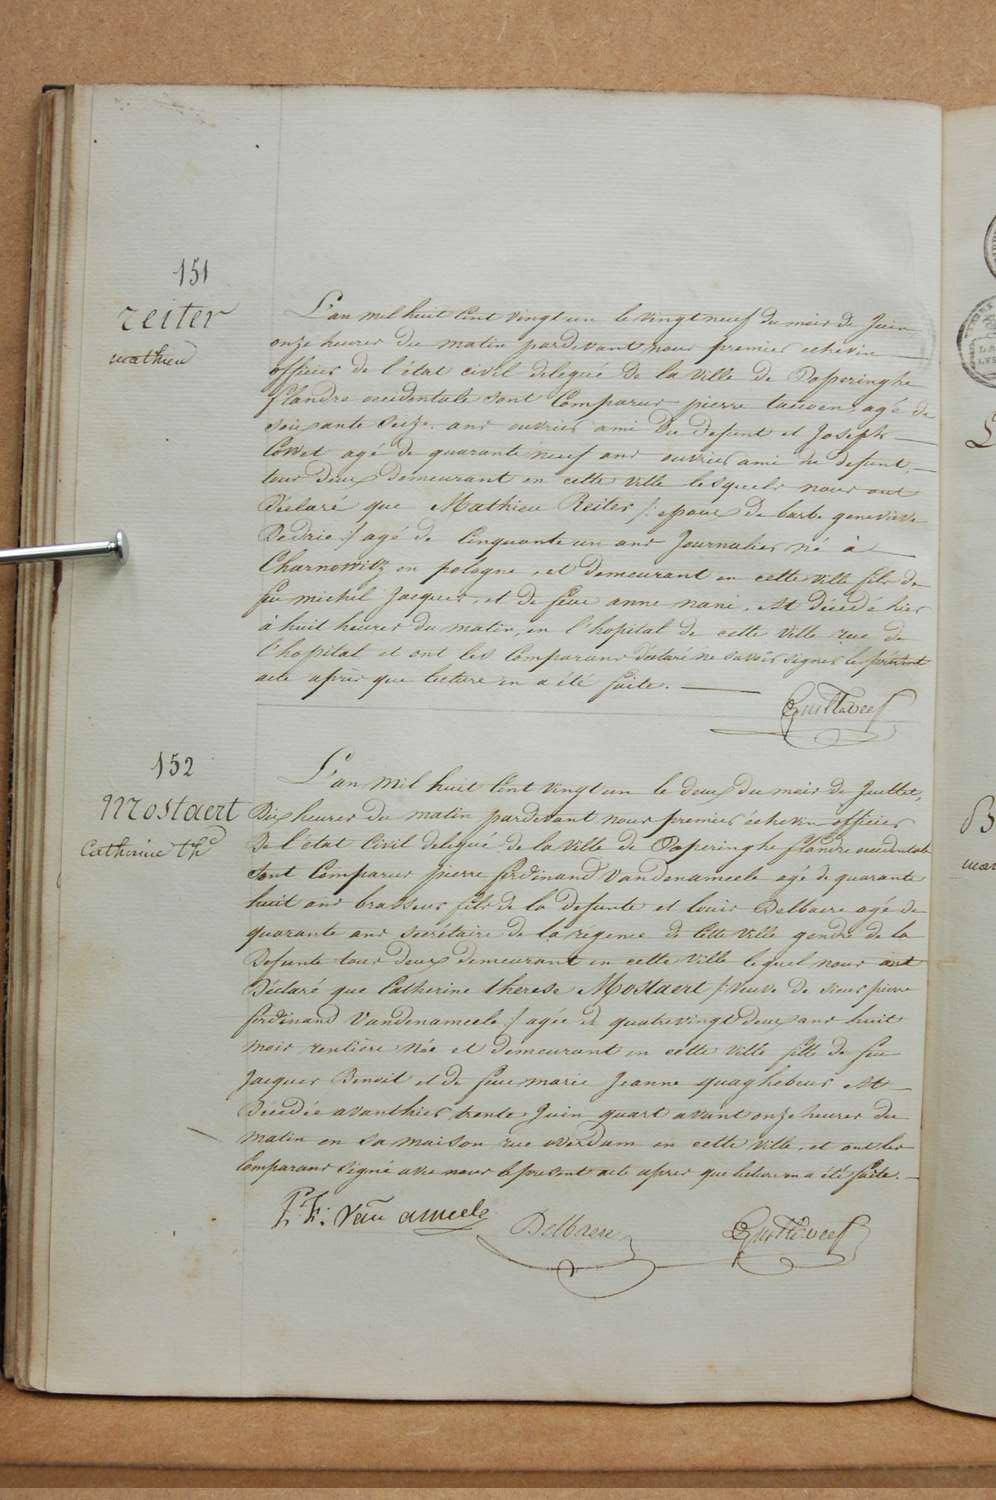 151
reiter
mathieu
L'an mil huit Cent vingt un le vingt neuf du mois de Juin
onze heures du matin pardevant nous premier echevin
officier de l'état civil delegué de la Ville de Poperinghe
flandre occidentale sont Comparus pierre agé de
soixante Seize ans ouvrier ami du defunt et Joseph
agé de quarante neuf ans ouvrier ami du defunt,
tous deux demeurant en cette ville lesquels nous ont
Déclaré que Mathieu Reiter /: epoux de barbe genevieve
:/ agé de Cinquante un ans Journalier né à
Charnowitz en pologne, et demeurant en cette ville fils de
feu michel Jacques, et de feue anne nani, est décédé hier
à huit heures du matin, en l'hopital de cette Ville rue de
l'hopital et ont les Comparans déclaré ne savoir signer le présent
acte après que lecture en a été faite.
152
Mostaert
Catherine thse
L'an Mil huit Cent vingt un le deux du mois de Juillet,
Dix heures du matin pardevant nous premier échevin officier
De l'état Civil delegué de la Ville de Poperinghe flandre occidentale
Sont Comparus pierre ferdinand Vandenameele agé de quarante
huit ans brasseur fils de la defunte et louis Delbaere agé de
quarante ans secrétaire de la regence de Cette Ville gendre de la
Defunte tous deux demeurant en cette Ville lequel nous ont
Déclaré que Catherine therese Mostaert /: Veuve de sieur pierre
ferdinand Vandenameele :/ agée de quatrevingt deux ans huit
mois rentière Née et demeurant en cette Ville fille de feu
Jacques Benoit et de feue marie Jeanne quaghebeur est
Décédée avanthier trente Juin quart avant onze heures du
matin en sa maison rue overdam en cette Ville, et ont les
Comparans signé avec nous le present acte apres que lecture en a été faite.
P. F. Van ameele
Delbaere